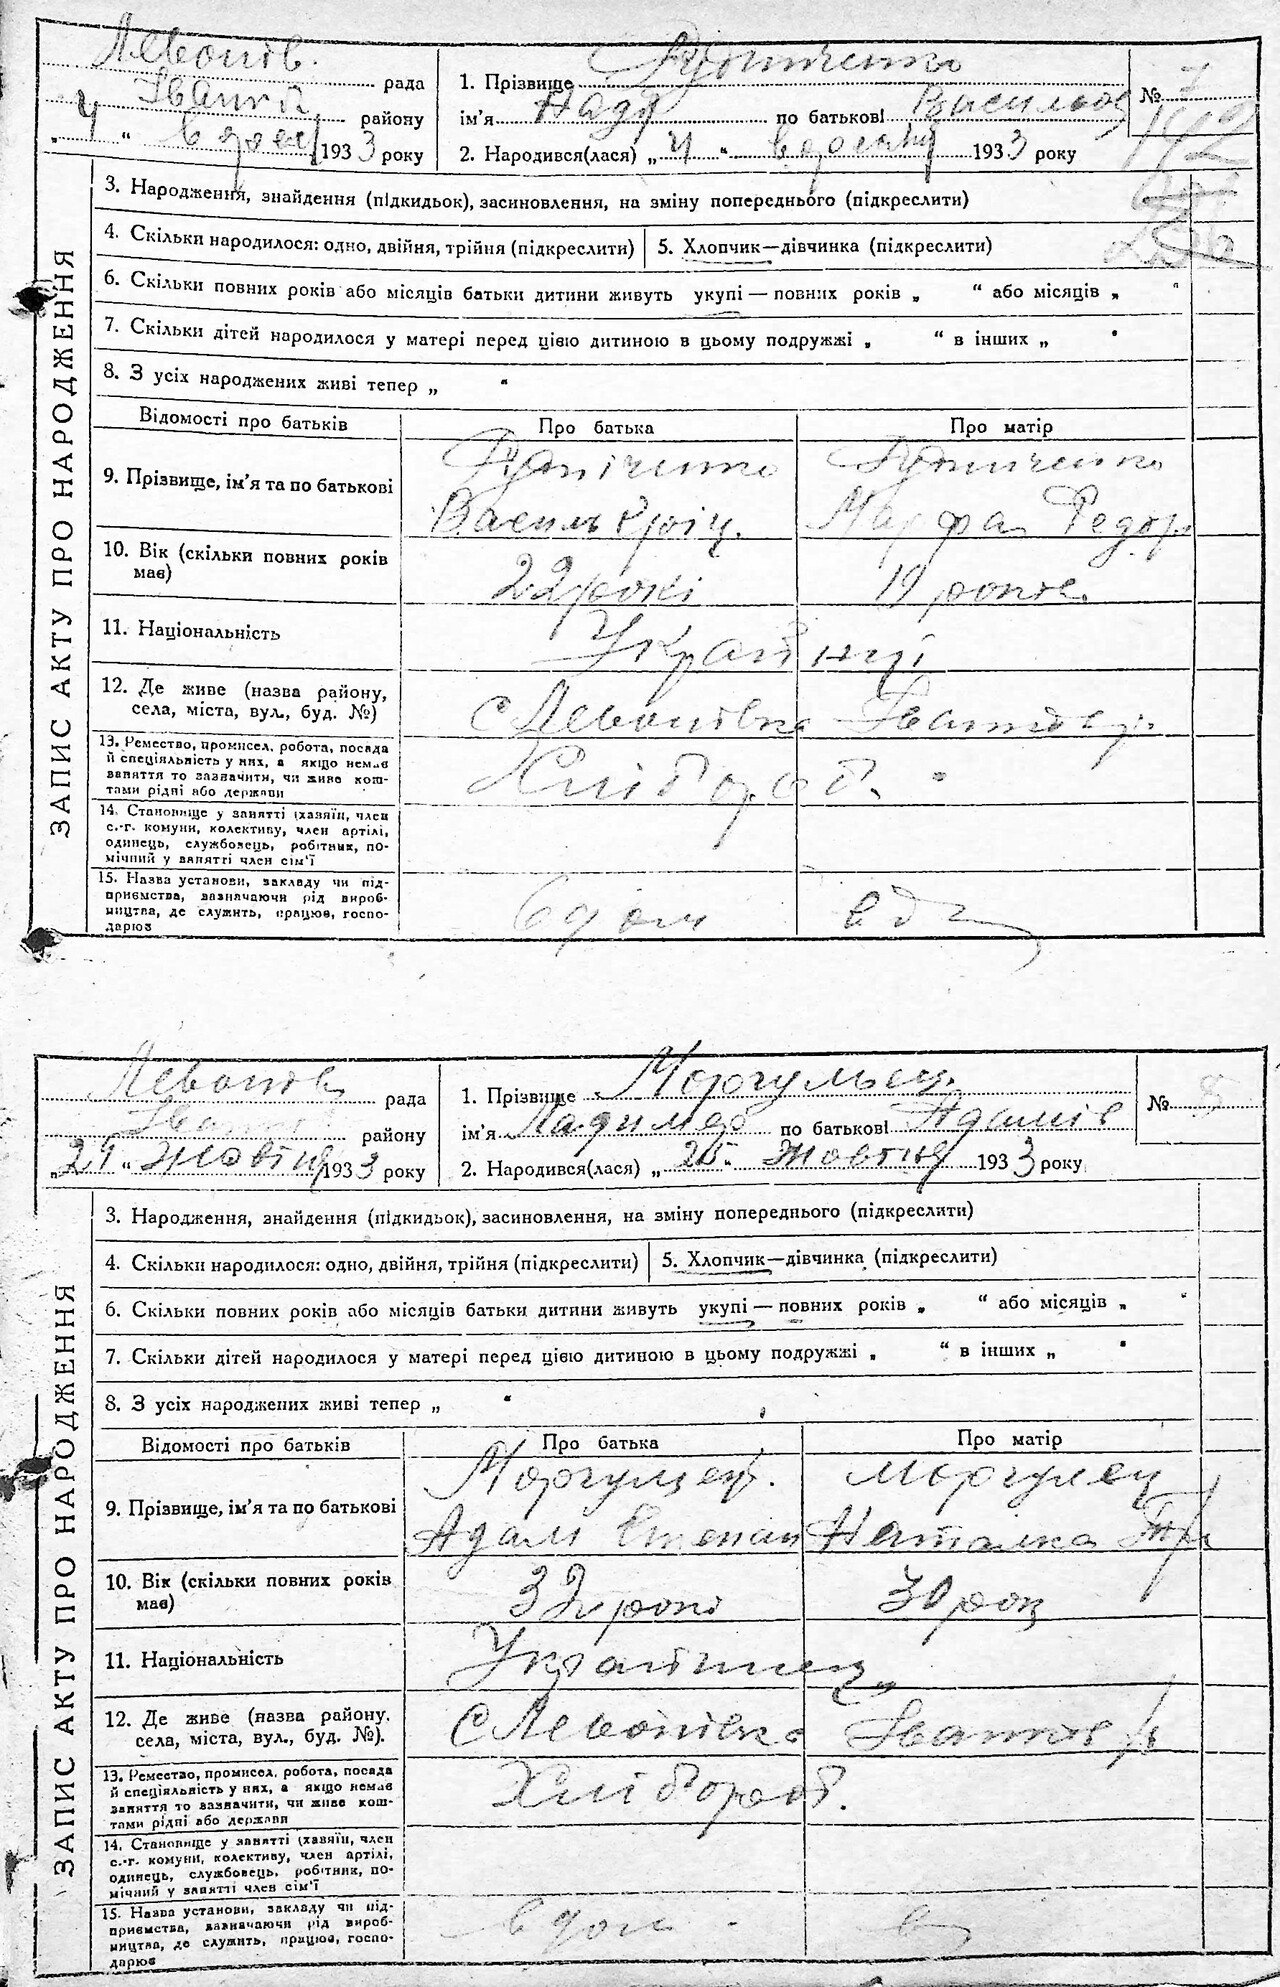 Левонів. рада
Іванків району
„ 4 “ 1933 року
1. Прізвище
ім'я Надя по батькові Васильов
2. Народився(лася) „ 4 “ 1933 року
№ 7
ЗАПИС АКТУ ПРО НАРОДЖЕННЯ
3. Народження, знайдення (підкидьок), засиновлення, на зміну попереднього (підкреслити)
4. Скільки народилося: одно, двійня, трійня (підкреслити) 5. Хлопчик—дівчинка (підкреслити)
6. Скільки повних років або місяців батьки дитини живуть укупі — повних років „ “ або місяців „ “
7. Скільки дітей народилося у матері перед цією дитиною в цьому подружжі „ “ в інших „ “
8. З усіх народжених живі тепер „ “
Відомості про батьків Про батька Про матір
9. Прізвище, ім'я та по батькові
Василь Марфа Федор
10. Вік (скільки повних років
має) 22 роки 19 років
11. Національність Українці
12. Де живе (назва району,
села, міста, вул., буд. №) с Левонівка Іванков р.
13. Ремество, промисел, робота, посада
й спеціяльність у них, а якщо немає
заняття то зазначити, чи живе кош-
тами рідні або держави
Хлібороб.
14. Становище у занятті (хазяїн, член
с.-г. комуни, колективу, член артілі,
одинець, службовець, робітник, по-
мічний у занятті член сім'ї
15. Назва установи, закладу чи під-
приємства, зазначаючи рід вироб-
ництва, де служить, працює, госпо-
дарює
в дом в д
Левонів рада
Іван району
„ 29 “ Жовтня 1933 року
1. Прізвище Моргулець.
ім'я Владимер по батькові Адамів
2. Народився(лася) „ 25 “ Жовтня 1933 року
№ 8
ЗАПИС АКТУ ПРО НАРОДЖЕННЯ
3. Народження, знайдення (підкидьок), засиновлення, на зміну попереднього (підкреслити)
4. Скільки народилося: одно, двійня, трійня (підкреслити) 5. Хлопчик—дівчинка (підкреслити)
6. Скільки повних років або місяців батьки дитини живуть укупі — повних років „ “ або місяців „ “
7. Скільки дітей народилося у матері перед цією дитиною в цьому подружжі „ “ в інших „ “
8. З усіх народжених живі тепер „ “
Відомості про батьків Про батька Про матір
Моргулець. Моргулец
9. Прізвище, ім'я та по батькові
Адам Степан Наталка
10. Вік (скільки повних років
має) 32 роки 30 рок
11. Національність Українец
12. Де живе (назва району,
села, міста, вул., буд. №). с Левонівка Іванков р
13. Ремество, промисел, робота, посада
й спеціяльність у них, а якщо немає
заняття то зазначити, чи живе кош-
тами рідні або держави
Хлібороб.
14. Становище у занятті (хазяїн, член
с.-г. комуни, колективу, член артілі,
одинець, службовець, робітник, по-
мічний у занятті член сім'ї
15. Назва установи, закладу чи під-
приємства, зазначаючи рід вироб-
ництва, де служить, працює, госпо-
дарює
в дом в